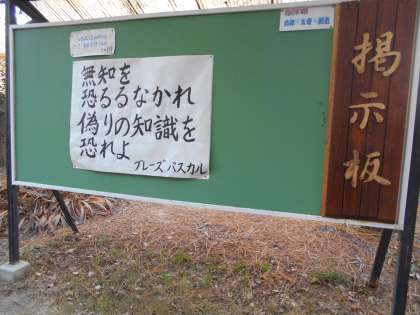 無知を
恐るるなかれ
偽りの知識を
恐れよ
ブレーズパスカル
掲示板